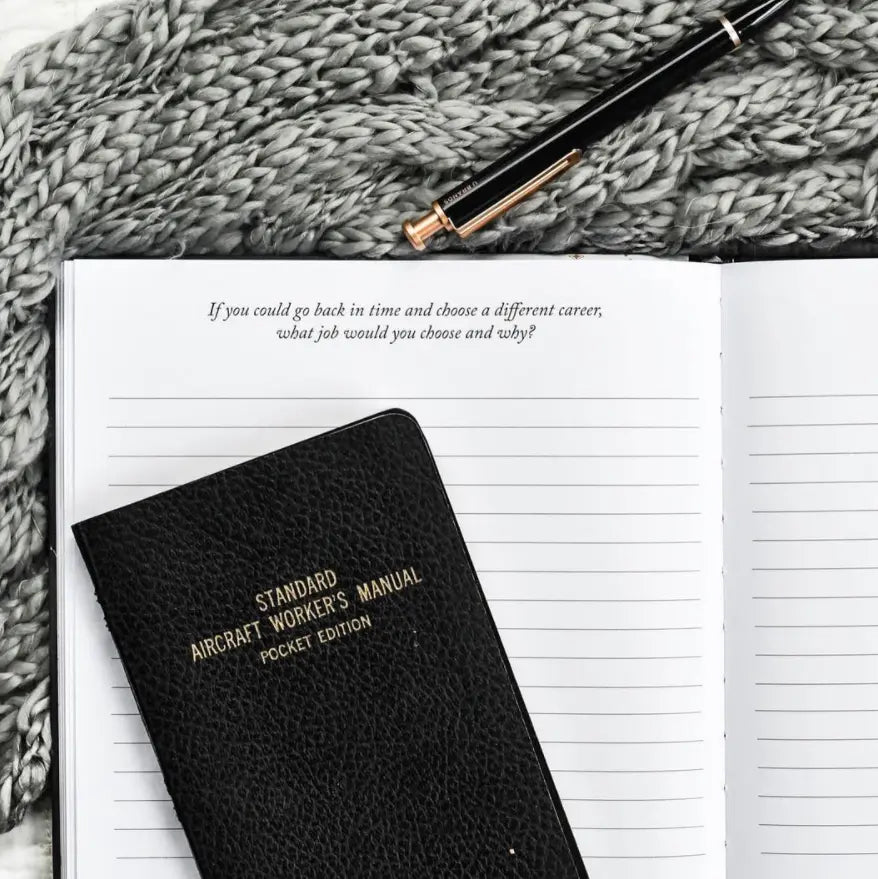 If you could go back in time and choose a different career,
what job would you choose and why?
STANDARD
AIRCRAFT WORKER'S MANUAL
POCKET EDITION